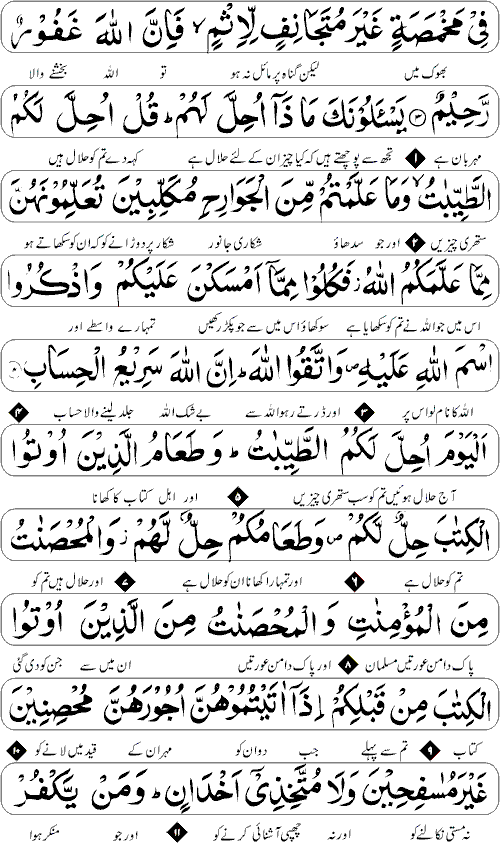 فِيْ مَخْمَصَةٍ غَيْرَ مُتَجَانِفٍ لِّاِثْمٍ ۙ فَاِنَّ اللّٰهَ غَفُوْرٌ
بھوک میں لیکن گناہ پر مائل نہ ہو تو اللہ بخشنے والا
رَّحِيْمٌ ۝۳ يَسْـَٔلُوْنَكَ مَاذَآ اُحِلَّ لَهُمْ ؕ قُلْ اُحِلَّ لَكُمُ
مہربان ہے ۱ تجھ سے پوچھتے ہیں کہ کیا چیز ان کے لئے حلال ہے کہہ دے تم کو حلال ہیں
الطَّيِّبٰتُ ۙ وَمَا عَلَّمْتُمْ مِّنَ الْجَوَارِحِ مُكَلِّبِيْنَ تُعَلِّمُوْنَهُنَّ
ستھری چیزیں ۲ اور جو سدھاؤ شکاری جانور شکار پر دوڑانے کو کہ ان کو سکھاتے ہو
مِمَّا عَلَّمَكُمُ اللّٰهُ ؗ فَكُلُوْا مِمَّآ اَمْسَكْنَ عَلَيْكُمْ وَاذْكُرُوا
اس میں جو اللہ نے تم کو سکھایا ہے سو کھاؤ اس میں سے جو پکڑ رکھیں تمہارے واسطے اور
اسْمَ اللّٰهِ عَلَيْهِ ۪ وَاتَّقُوا اللّٰهَ ؕ اِنَّ اللّٰهَ سَرِيْعُ الْحِسَابِ ۝
اللہ کا نام لو اس پر ۳ اور ڈرتے رہو اللہ سے بے شک اللہ جلد لینے والا حساب ۴
اَلْيَوْمَ اُحِلَّ لَكُمُ الطَّيِّبٰتُ ؕ وَطَعَامُ الَّذِيْنَ اُوْتُوا
آج حلال ہوئیں تم کو سب ستھری چیزیں ۵ اور اہل کتاب کا کھانا
الْكِتٰبَ حِلٌّ لَّكُمْ ۪ وَطَعَامُكُمْ حِلٌّ لَّهُمْ ؗ وَالْمُحْصَنٰتُ
تم کو حلال ہے ۶ اور تمہارا کھانا ان کو حلال ہے ۷ اور حلال ہیں تم کو
مِنَ الْمُؤْمِنٰتِ وَالْمُحْصَنٰتُ مِنَ الَّذِيْنَ اُوْتُوا
پاک دامن عورتیں مسلمان ۸ اور پاک دامن عورتیں ان میں سے جن کو دی گئی
الْكِتٰبَ مِنْ قَبْلِكُمْ اِذَآ اٰتَيْتُمُوْهُنَّ اُجُوْرَهُنَّ مُحْصِنِيْنَ
کتاب ۹ تم سے پہلے جب دو ان کو مہر ان کے قید میں لانے کو ۱۰
غَيْرَ مُسٰفِحِيْنَ وَلَا مُتَّخِذِيْٓ اَخْدَانٍ ؕ وَمَنْ يَّكْفُرْ
نہ مستی نکالنے کو اور نہ چھپی آشنائی کرنے کو ۱۱ اور جو منکر ہوا